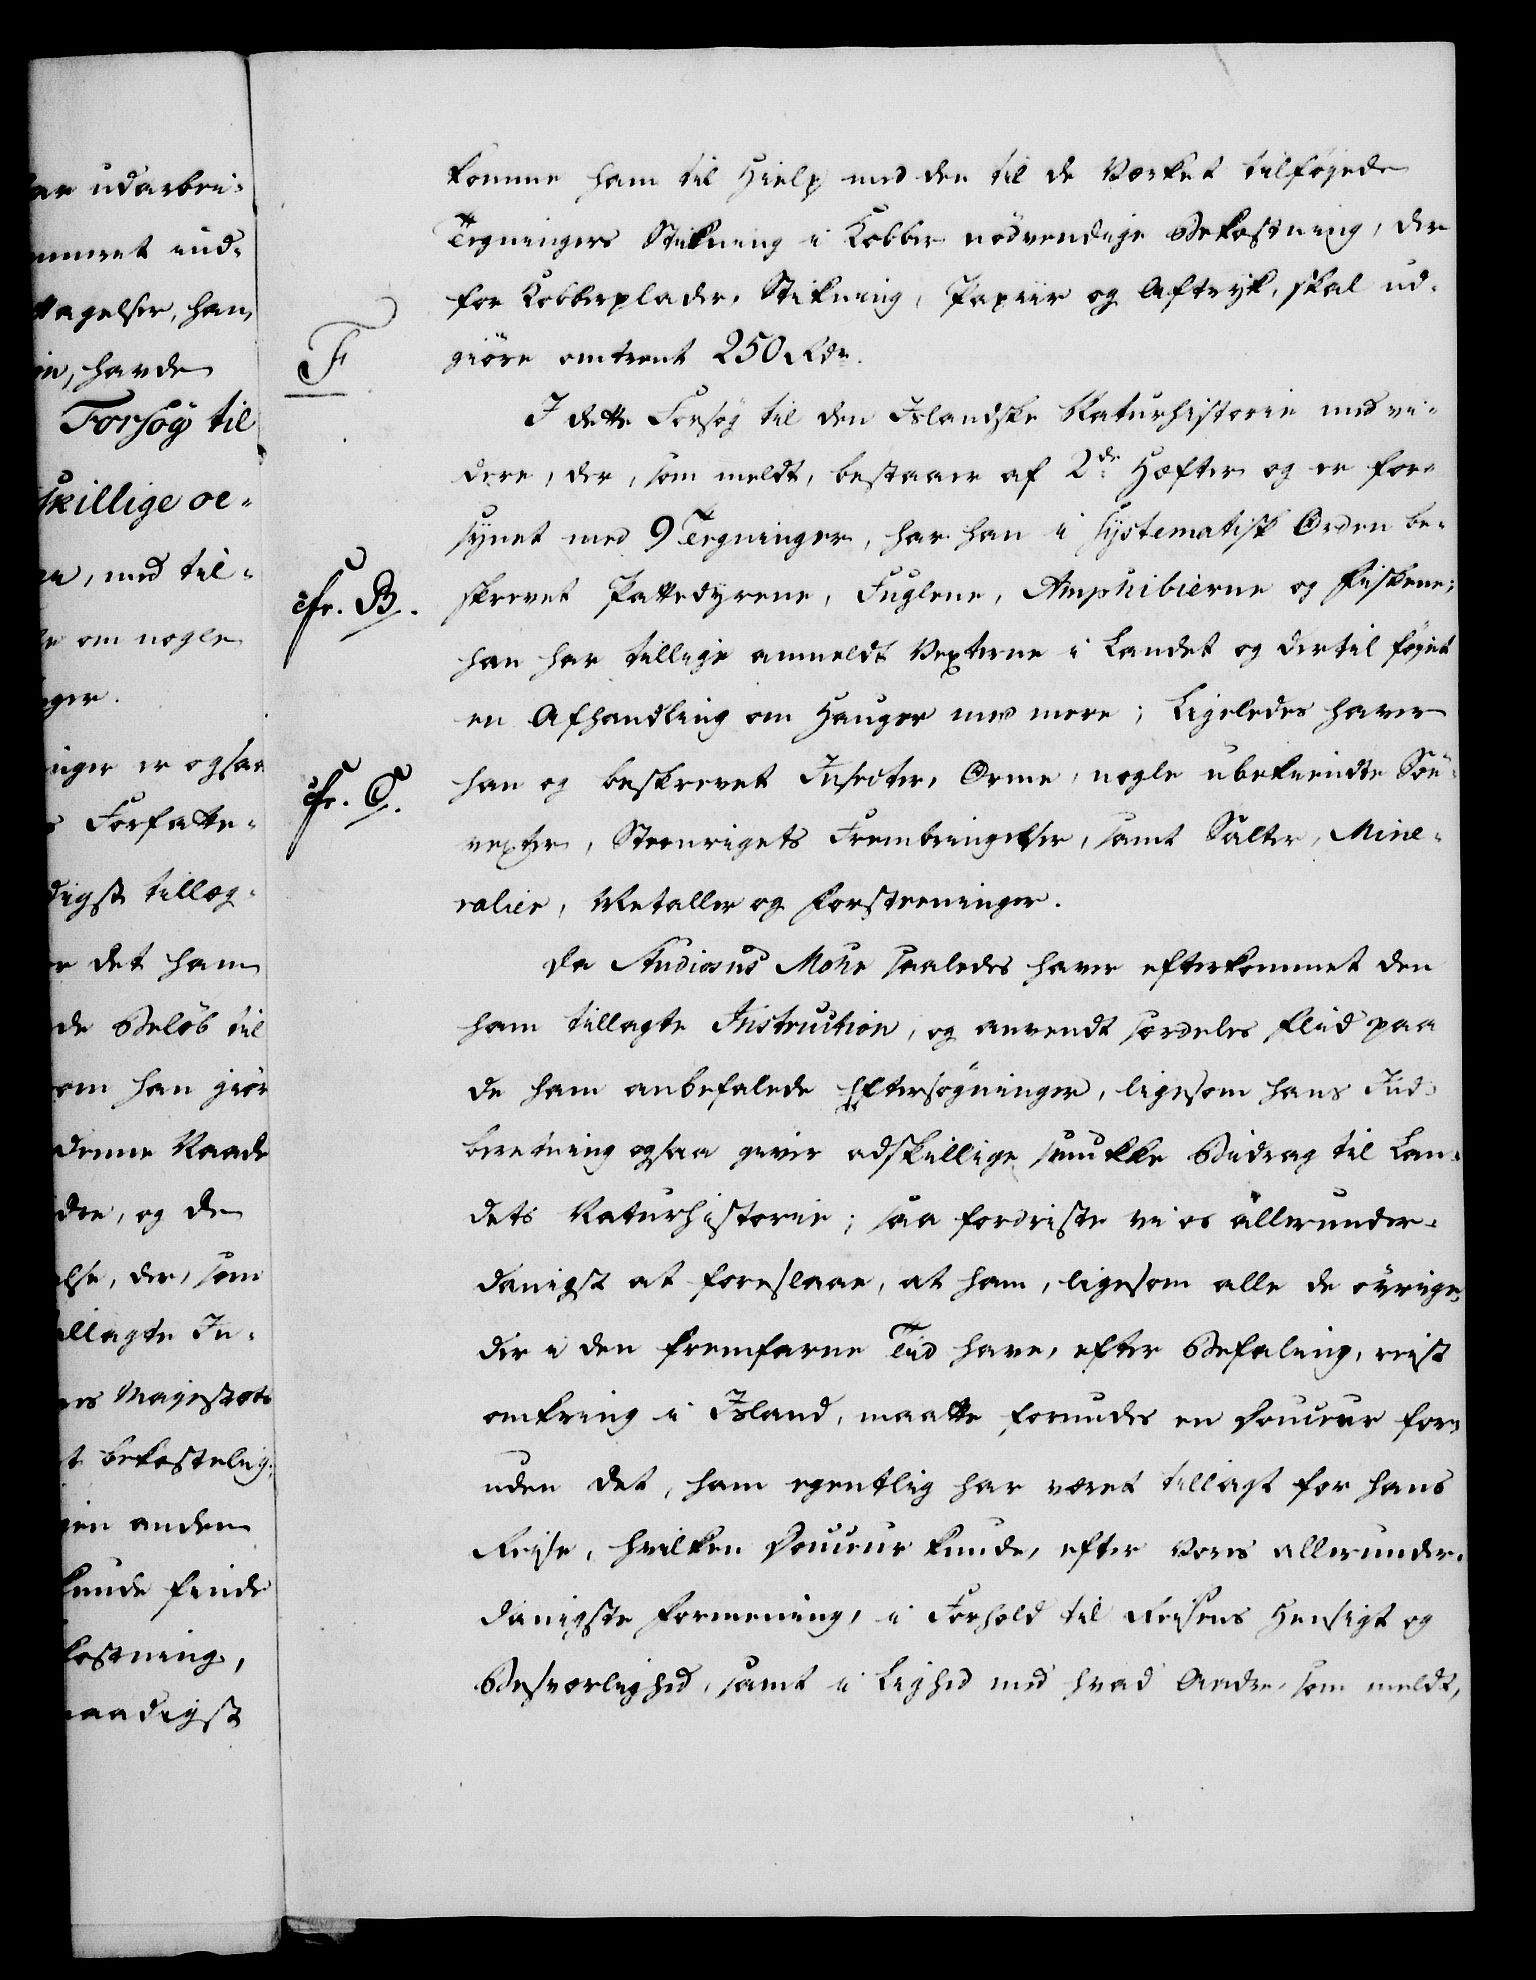 ar udarbei-
mmet ind-
ttagelser, han
in, havde
Forsøg til
skillige oe-
ne, med til-
le om nogle
ger.
inger er ogsaa
s Forfatte-
digst tillæg-
er det ham
de Beløb til
om han giør
denne Raade
dre, og de
else, der, som
illagte In-
ers Majestæts
t bekostelig-
gen anden
kunde finde
kostning,
naadigst
komme ham til Hielp med den til de Værket tilføjede
Tegningers Stikning i Kobber nödvendige Bekostning, der
for Kobberplader, Stikning, Papiir og Aftryk, skal ud-
F
giöre omtrent 250 Rdr.
I dette Forsög til den Islandske Naturhistorie med vi-
dere, der, som meldt, bestaaer af 2de Hæfter og er for-
synet med 9 Tegninger, har han i systematisk Orden be-
cfr. B.
skrevet Pattedyrene, Fuglene, Amphibierne og Fiskene;
han har tillige anmeldt Vexterne i Landet og dertil föjet
en Afhandling om Hauger med mere; Ligeledes haver
cfr. C.
han og beskrevet Insecter, Orme, nogle ubekiendte Söe-
vexter, Steenrigets Frembringelser, samt Salter, Mine-
ralier, Metaller og Forsteeninger.
Da Studiosus Mohr saaledes haver efterkommet den
ham tillagte Instruction, og anvendt særdeles Fliid paa
de ham anbefalede Eftersögninger, ligesom hans Ind-
beretning ogsaa giver adskillige smukke Bidrag til Lan-
dets Naturhistorie; saa fordriste vi os allerunder-
danigst at foreslaae, at ham, ligesom alle de övrige,
der i den fremfarne Tiid have, efter Befaling, reist
omkring i Island, maatte forundes en Douceur for-
uden det, ham egentlig har været tillagt for hans
Reise, hvilken Douceur kunde, efter Vores allerunder-
danigste Formening, i Forhold til Reisens Hensigt og
Besværlighed, samt i Lighed med hvad Andre, som meldt,